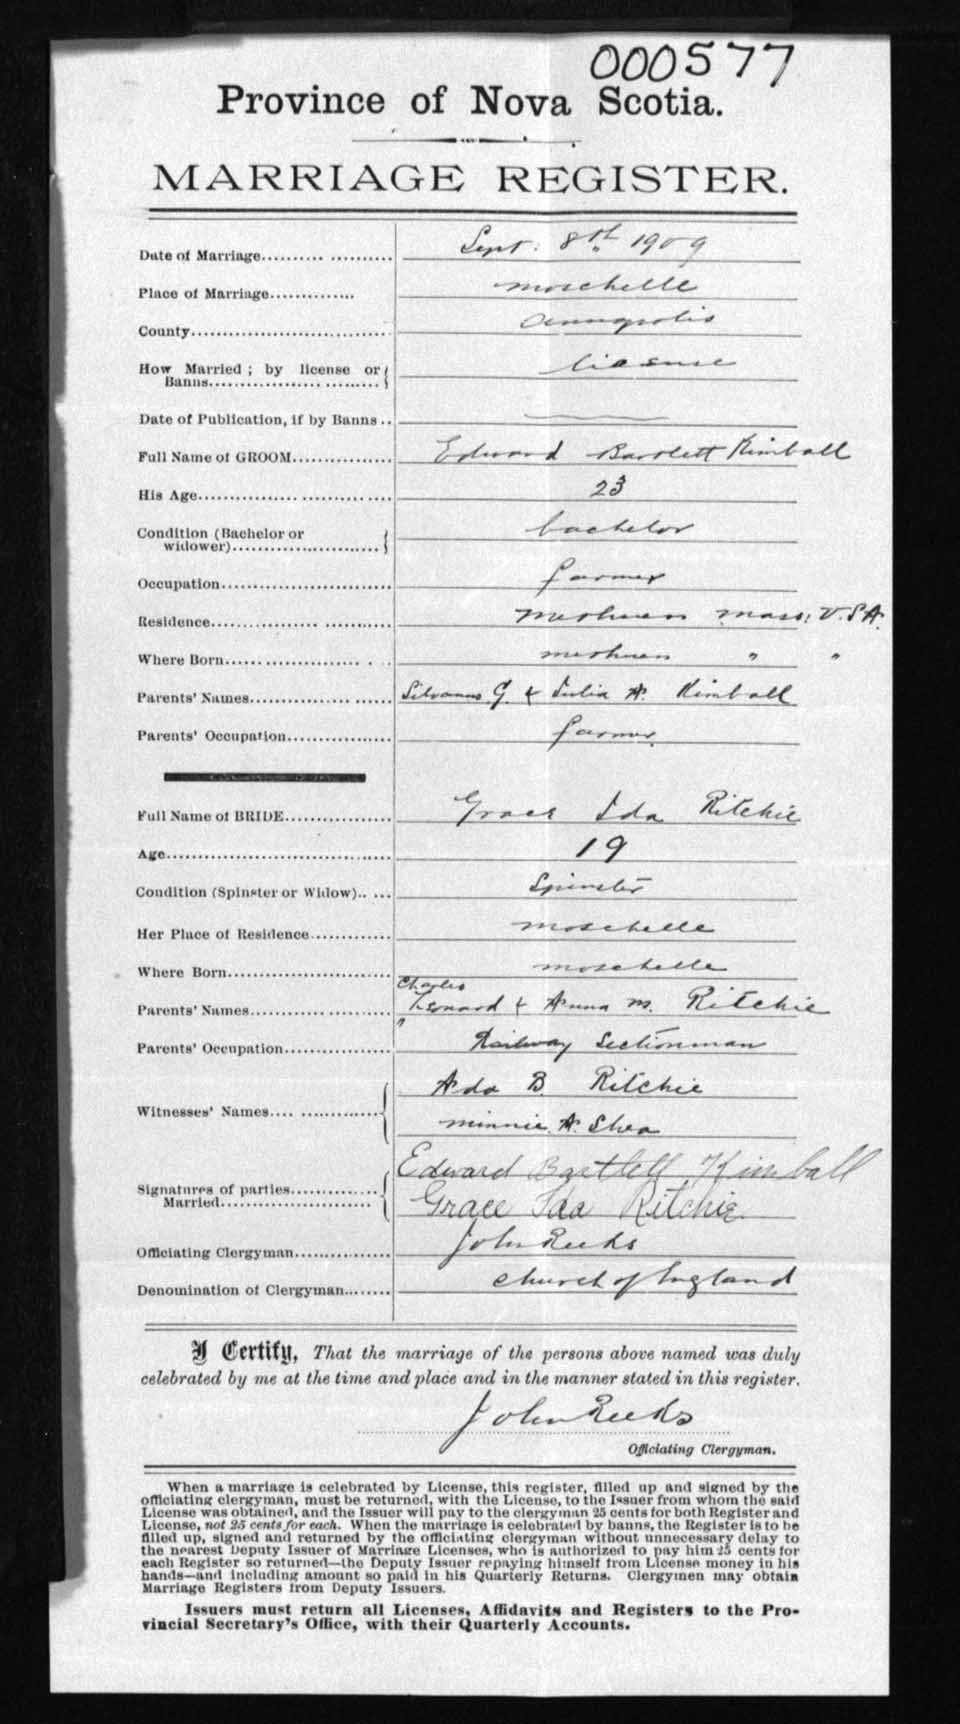 000577
Province of Nova Scotia.
MARRIAGE REGISTER.
Date of Marriage.......... .......... Sept. 8th 1909
Place of Marriage.............. moschelle
County............................... Annapolis
How Married ; by license or license
Banns.................... .........
Date of Publication, if by Banns ..
Full Name of GROOM................ Edward Bartlett Kimball
His Age................ ......... .... 23
Condition (Bachelor or bachelor
widower).........................
Occupation........................... farmer
Residence................ ........... Methuen Mass. U.S.A.
Where Born...................... . . methuen " "
Parents' Names............... ...... Silvanus G. & Julia A. Kimball
Parents' Occupation................ farmer
Full Name of BRIDE................ Grace Ida Ritchie
Age.................................... 19
Condition (Spinster or Widow).. ... Spinster
Her Place of Residence............ moschelle
Where Born......................... moschelle
Charles
Parents' Names............... ...... Leonard & Anna M. Ritchie
"
Parents' Occupation................ Railway Sectionman
Ada B. Ritchie
Witnesses' Names.... .............
minnie A. Shea
Edward Bartlett Kimball
Signatures of parties..............
Married....................... Grace Ida Ritchie
Officiating Clergyman.............. John Reeks
Denomination of Clergyman........ Church of England
I Certify, That the marriage of the persons above named was duly
celebrated by me at the time and place and in the manner stated in this register.
John Reeks
Officiating Clergyman.
When a marriage is celebrated by License, this register, filled up and signed by the
officiating clergyman, must be returned, with the License, to the Issuer from whom the said
License was obtained, and the Issuer will pay to the clergyman 25 cents for both Register and
License, not 25 cents for each. When the marriage is celebrated by banns, the Register is to be
filled up, signed and returned by the officiating clergyman without unnecessary delay to
the nearest Deputy Issuer of Marriage Licenses, who is authorized to pay him 25 cents for
each Register so returned—the Deputy Issuer repaying himself from License money in his
hands—and including amount so paid in his Quarterly Returns. Clergymen may obtain
Marriage Registers from Deputy Issuers.
Issuers must return all Licenses, Affidavits and Registers to the Pro-
vincial Secretary's Office, with their Quarterly Accounts.